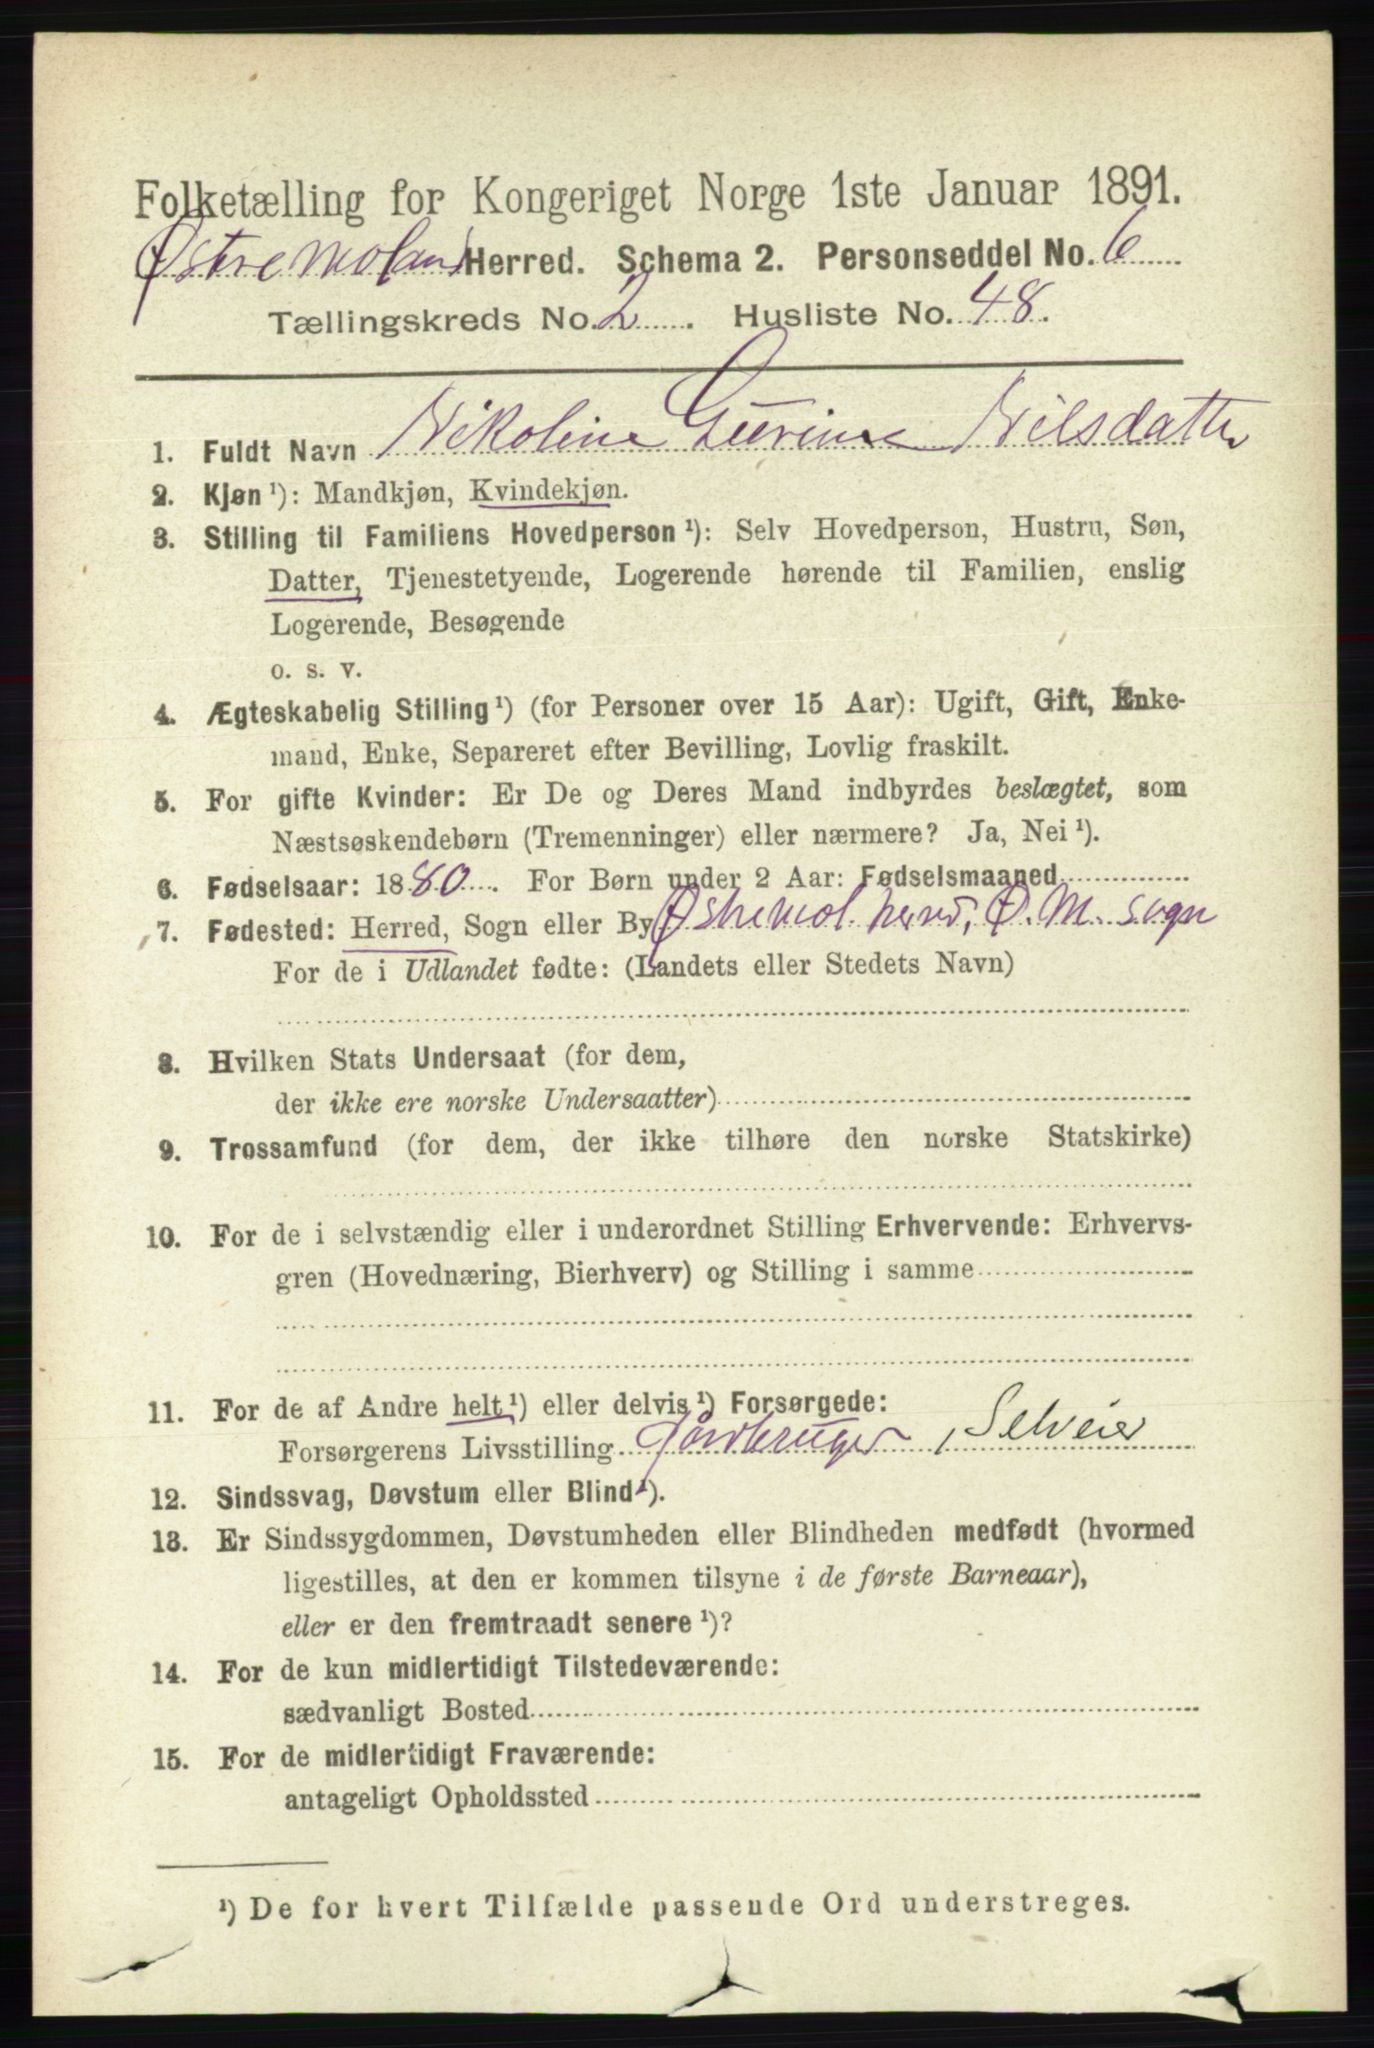 Folketælling for Kongeriget Norge 1ste Januar 1891.
Østre Moland Herred. Schema 2. Personseddel No. 6
Tællingskreds No. 2. Husliste No. 48.
1. Fuldt Navn Nikoline Gurine Nilsdatter
2. Kjøn ¹): Mandkjøn, Kvindekjøn.
3. Stilling til Familiens Hovedperson ¹): Selv Hovedperson, Hustru, Søn,
Datter, Tjenestetyende, Logerende hørende til Familien, enslig
Logerende, Besøgende
o. s. v.
4. Ægteskabelig Stilling ¹) (for Personer over 15 Aar): Ugift, Gift, Enke-
mand, Enke, Separeret efter Bevilling, Lovlig fraskilt.
5. For gifte Kvinder: Er De og Deres Mand indbyrdes beslægtet, som
Næstsøskendebørn (Tremenninger) eller nærmere? Ja, Nei ¹).
6. Fødselsaar: 1880. For Børn under 2 Aar: Fødselsmaaned
7. Fødested: Herred, Sogn eller By Østre Mol. herred, Ø. M. sogn
For de i Udlandet fødte: (Landets eller Stedets Navn)
8. Hvilken Stats Undersaat (for dem,
der ikke ere norske Undersaatter)
9. Trossamfund (for dem, der ikke tilhøre den norske Statskirke)
10. For de i selvstændig eller i underordnet Stilling Erhvervende: Erhvervs-
gren (Hovednæring, Bierhverv) og Stilling i samme
11. For de af Andre helt ¹) eller delvis ¹) Forsørgede:
Forsørgerens Livsstilling Jordbruger, Selveier
12. Sindssvag, Døvstum eller Blind ¹).
13. Er Sindssygdommen, Døvstumheden eller Blindheden medfødt (hvormed
ligestilles, at den er kommen tilsyne i de første Barneaar),
eller er den fremtraadt senere ¹)?
14. For de kun midlertidigt Tilstedeværende:
sædvanligt Bosted
15. For de midlertidigt Fraværende:
antageligt Opholdssted
¹) De for hvert Tilfælde passende Ord understreges.